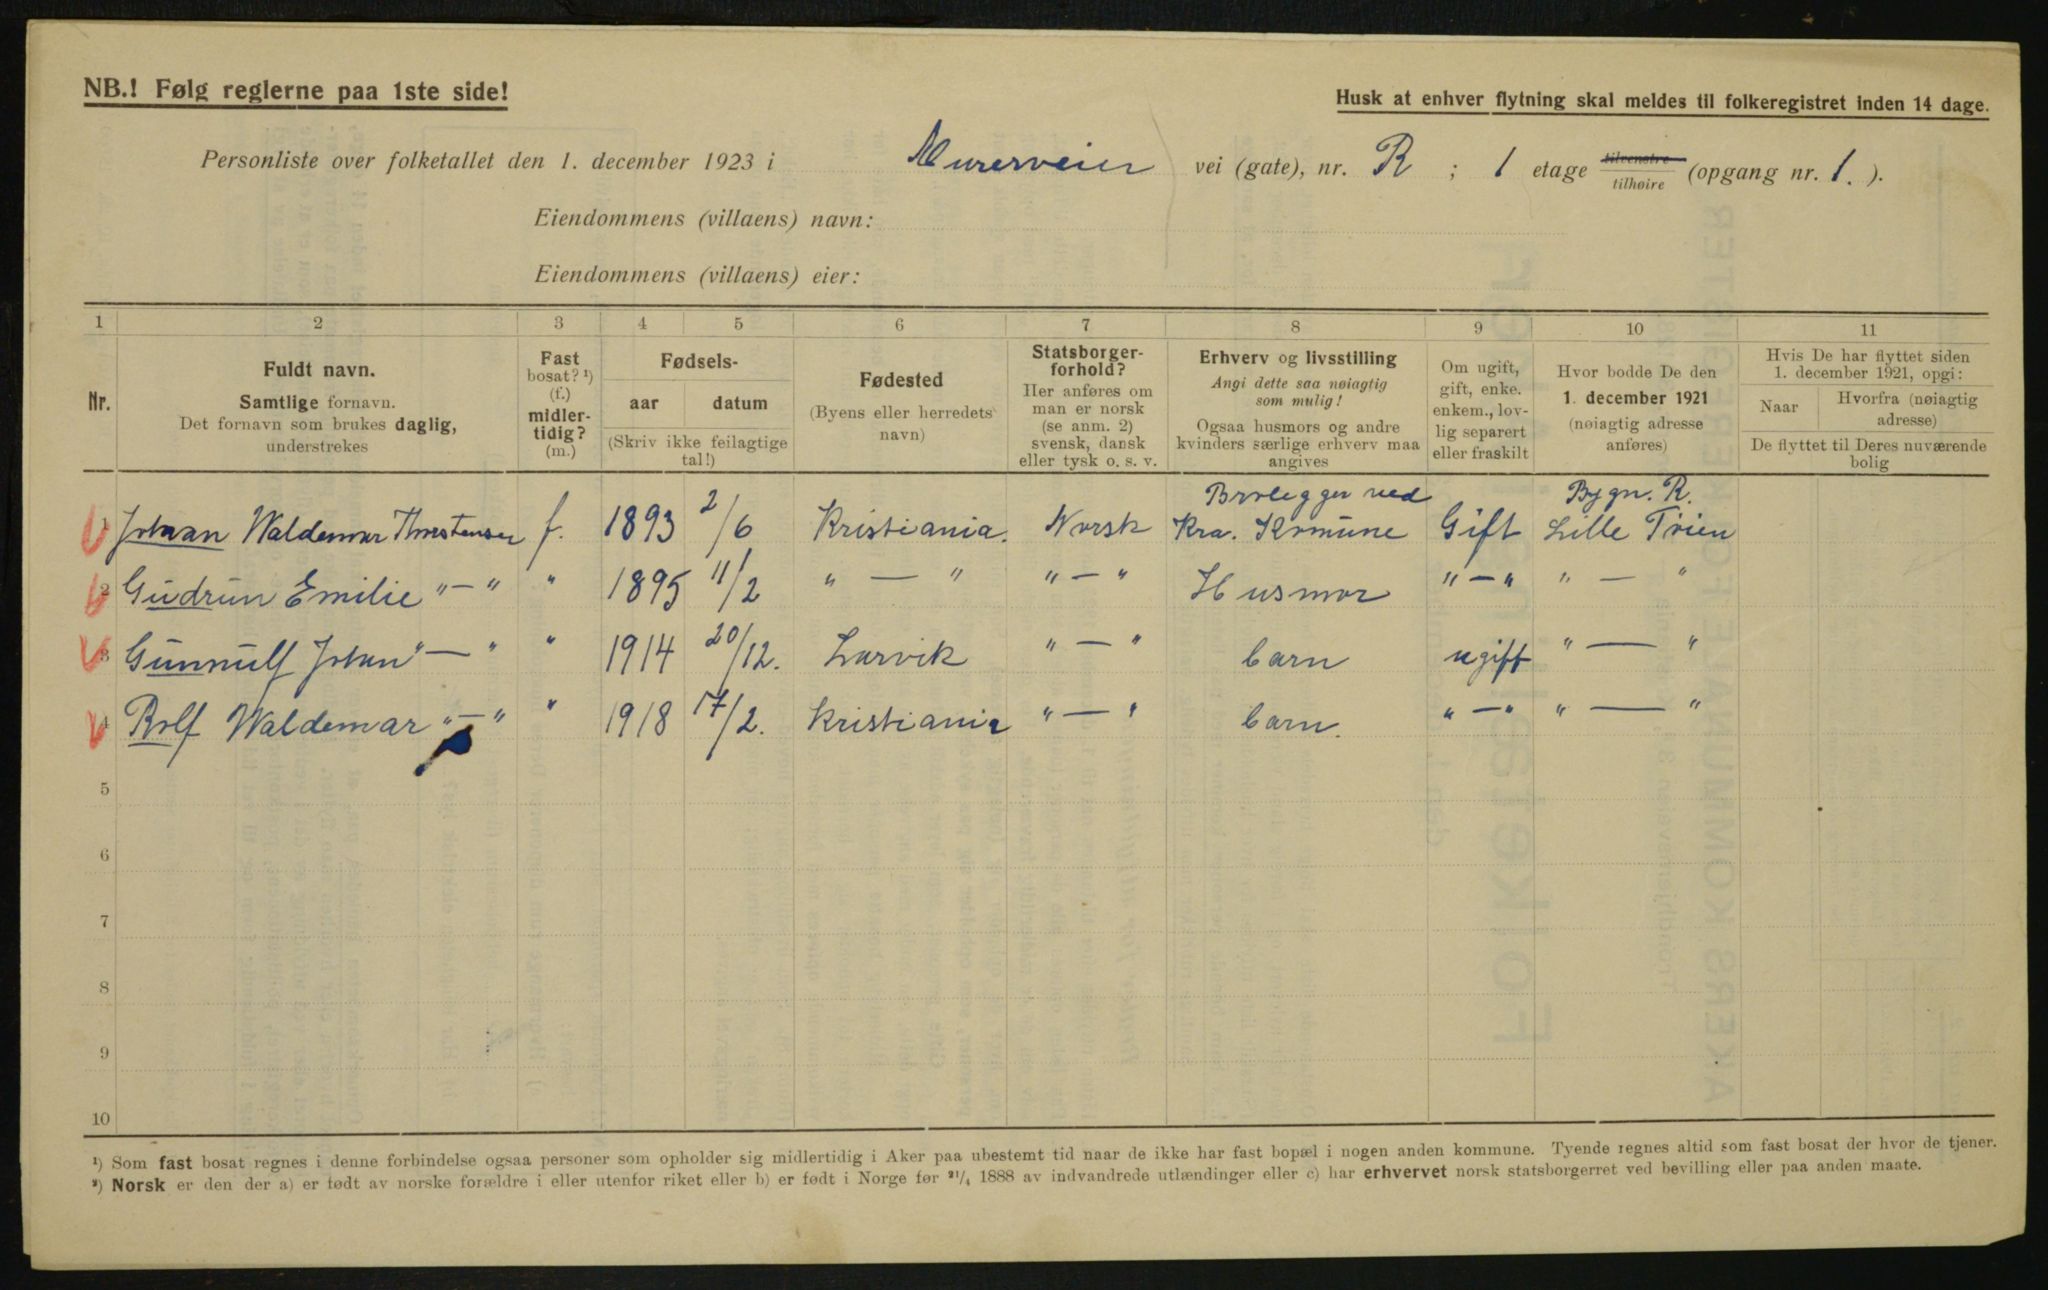 NB.! Følg reglerne paa 1ste side!
Husk at enhver flytning skal meldes til folkeregistret inden 14 dage.
Personliste over folketallet den 1. december 1923 i Murerveien vei (gate), nr. R ; 1 etage tilvenstre tilhøire (opgang nr. 1. ).
Eiendommens (villaens) navn:
Eiendommens (villaens) eier:
1 2 3 4 5 6 7 8 9 10 11
Nr.
Fuldt navn.
Samtlige fornavn.
Det fornavn som brukes daglig,
understrekes
Fast
bosat? ¹)
(f.)
midler-
tidig?
(m.)
Fødsels-
aar datum
(Skriv ikke feilagtige
tal!)
Fødested
(Byens eller herredets
navn)
Statsborger-
forhold?
Her anføres om
man er norsk
(se anm. 2)
svensk, dansk
eller tysk o. s. v.
Erhverv og livsstilling
Angi dette saa nøiagtig
som mulig!
Ogsaa husmors og andre
kvinders særlige erhverv maa
angives
Om ugift,
gift, enke.
enkem., lov-
lig separert
eller fraskilt
Hvor bodde De den
1. december 1921
(nøiagtig adresse
anføres)
Hvis De har flyttet siden
1. december 1921, opgi:
Naar
Hvorfra (nøiagtig
adresse)
De flyttet til Deres nuværende
bolig
Brolegger ved Bygn. R.
1 Johan Waldemar Thorstensen f. 1893 2/6 Kristiania. Norsk Kra. Komune Gift Lille Tøien
2 Gudrun Emilie "—" " 1895 11/2 " — " " — " Husmor " — " " — "
3 Gunnulf Johan "—" " 1914 20/12. Larvik " — " barn ugift " — "
4 Rolf Waldemar "—" " 1918 17/2. Kristiania " — " barn. " — " " — "
5
6
7
8
9
10
¹) Som fast bosat regnes i denne forbindelse ogsaa personer som opholder sig midlertidig i Aker paa ubestemt tid naar de ikke har fast bopæl i nogen anden kommune. Tyende regnes altid som fast bosat der hvor de tjener.
²) Norsk er den der a) er født av norske forældre i eller utenfor riket eller b) er født i Norge før ²¹/₄ 1888 av indvandrede utlændinger eller c) har erhvervet norsk statsborgerret ved bevilling eller paa anden maate.